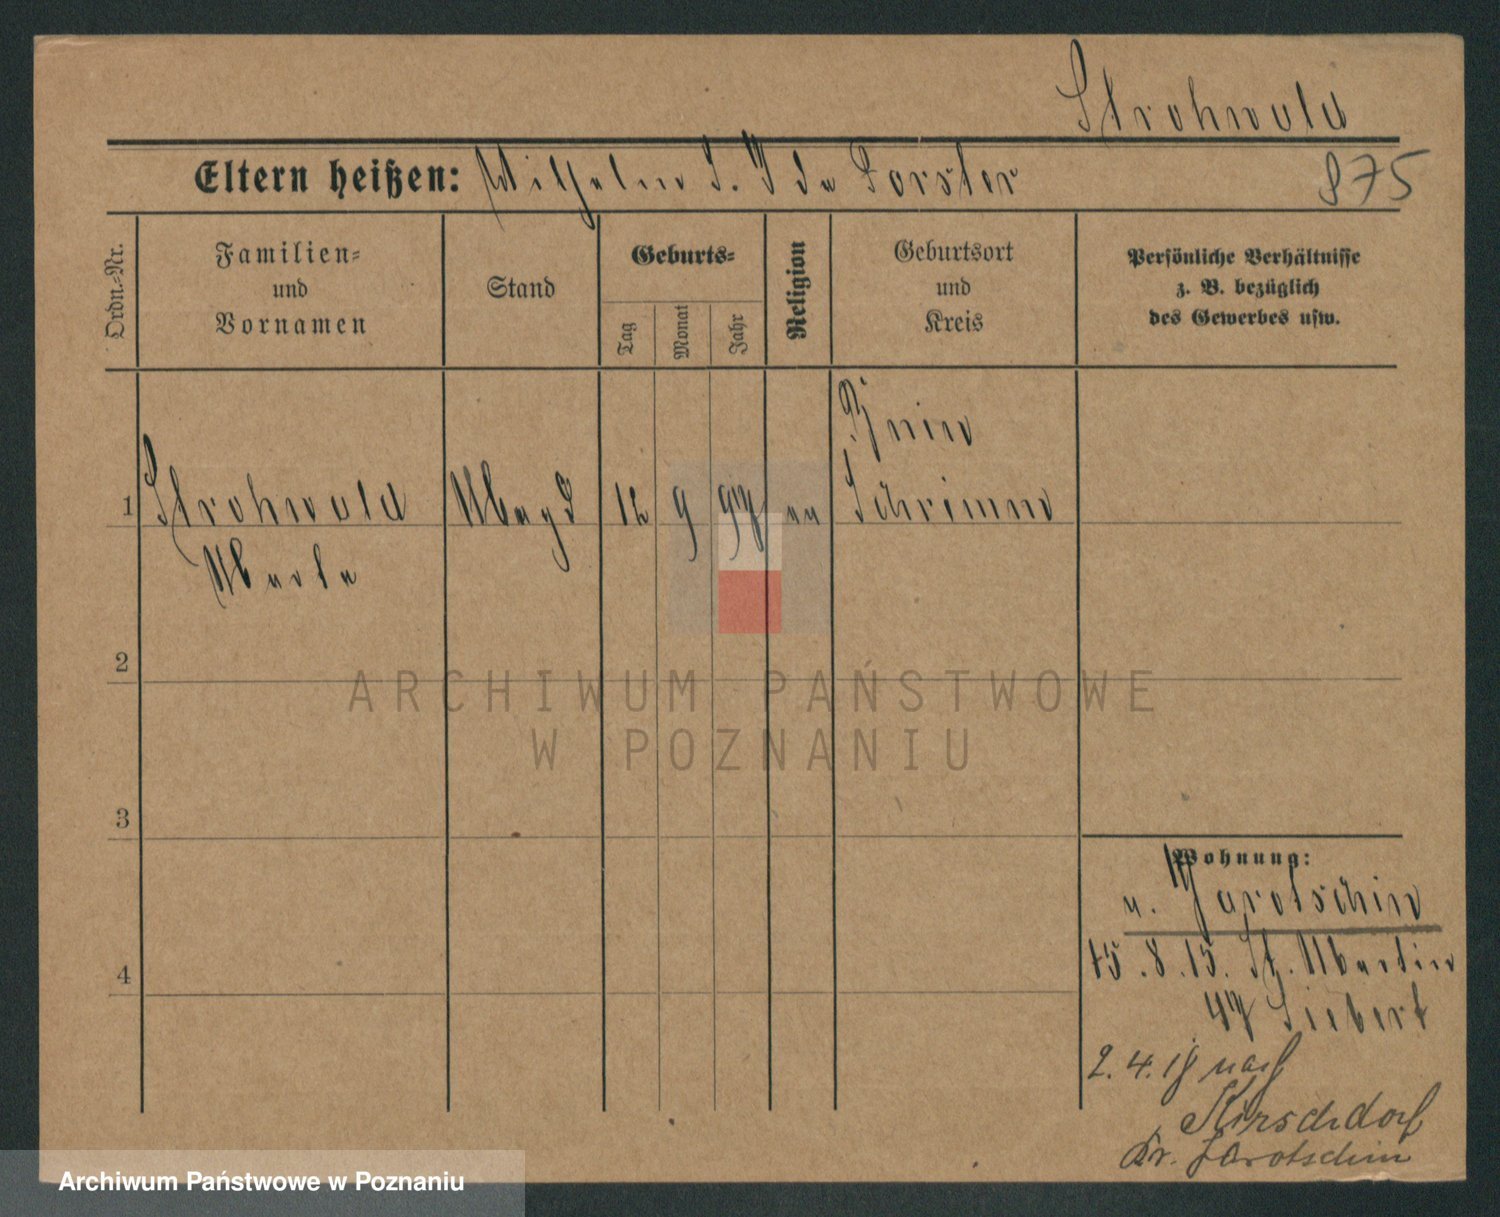 Strohwald
Eltern heißen: Wilhelm S. Ida Forster
875
Ordn.=Nr.
Familien=
und
Vornamen
Stand
Geburts=
Tag
Monat
Jahr
Religion
Geburtsort
und
Kreis
Persönliche Verhältnisse
z. B. bezüglich
des Gewerbes usw.
Bnin
1 Strohwald Magd 12 9 97 Schrimm
2
3
4
ARCHIWUM PAŃSTWOWE
W POZNANIU
Wohnung:
v. Jarotschin
15.8.15. St. Martin
47 Siebert
2.4. nach
Hirschdorf
Kr. Jarotschin
Archiwum Państwowe w Poznaniu